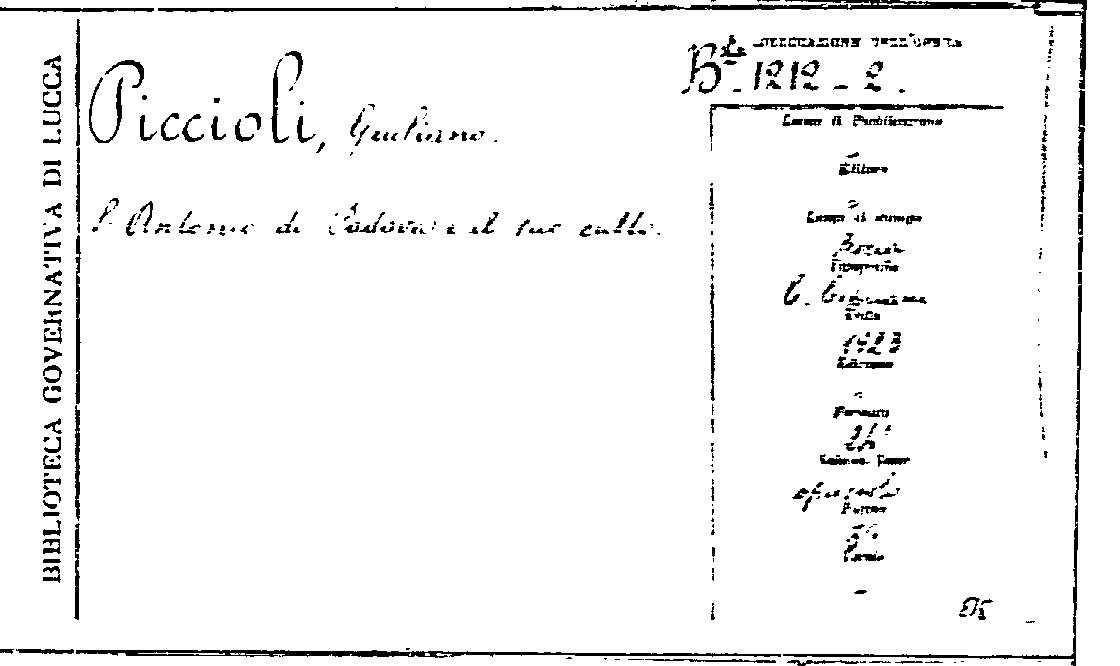 BIBLIOTECA GOVERNATIVA DI LUCCA
Piccioli, Giuliano.
S. Antonio di Padova e il suo culto.
COLLOCAZIONE DELL'OPERA
B.ta 1212 - 2.
Luogo di Pubblicazione
-
Editore
-
Luogo di stampa
Tipografia
C.
Data
1923
Edizione
-
Formato
24°
Volume
opuscolo
-